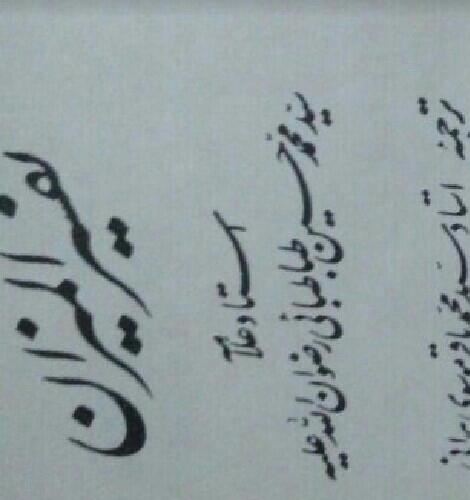 تفسیر المیزان
استاد علامه
سید محمد حسین طباطبائی رضوان الله علیه
ترجمه استاد سید محمد باقر موسوی همدانی